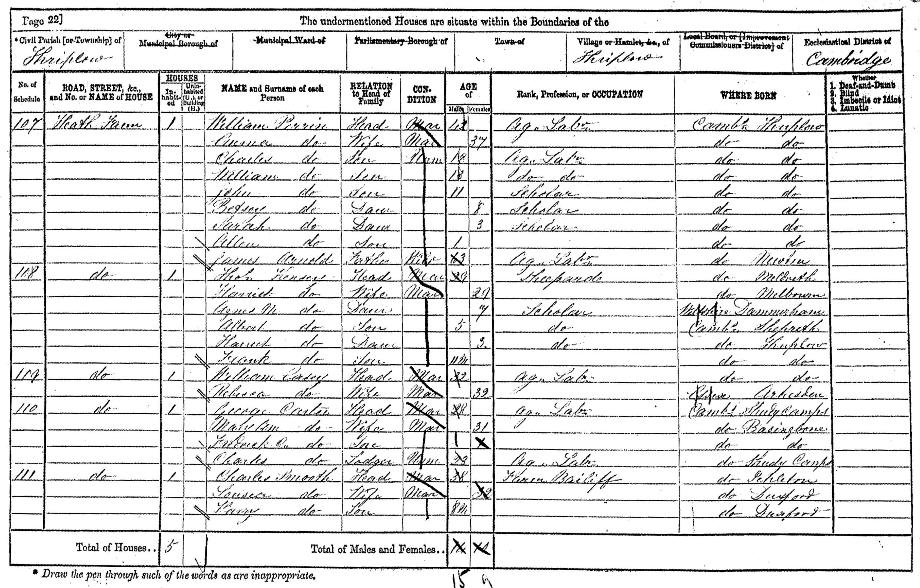 Page 22]
The undermentioned Houses are situate within the Boundaries of the
*Civil Parish [or Township] of
City or Municipal Borough of
Municipal Ward of
Parliamentary Borough of
Town of
Village or Hamlet, &c., of
Local Board, or [Improvement Commissioners District] of
Ecclesiastical District of
Thriplow
Thriplow
Cambridge
No. of Schedule
ROAD, STREET, &c., and No. or NAME of HOUSE
HOUSES
Inhabited
Uninhabited (U.), or Building (B.)
NAME and Surname of each Person
RELATION to Head of Family
CONDITION
AGE of
Males
Females
Rank, Profession, or OCCUPATION
WHERE BORN
Whether
1. Deaf-and-Dumb
2. Blind
3. Imbecile or Idiot
4. Lunatic
107 Heath Farm 1 William Perrin Head Mar Ag. Lab. Camb. Thriplow
Emma do Wife Mar 37 do do
Charles do Son Unm Ag. Lab. do do
William do Son do do do do
John do Son 11 Scholar do do
Betsey do Daur 8 Scholar do do
Sarah do Daur 3 Scholar do do
Allen do Son 1 do do
James Arnold Wid 63 Ag. Lab. do Newton
108 do 1 Head Mar 29 Shepard do Meldreth
Harriet do Wife Mar 29 do Melbourn
do Daur 7 Scholar
Albert do Son 5 do Camb. Shepreth
Harriet do Daur 2 do do Thriplow
Frank do Son do do
109 do 1 William Casey Head Mar 32 Ag. Lab. do do
Rebecca do Wife Mar 32
110 do 1 George Head Mar 28 Ag. Lab. Camb. Shudy Camps
Mary Ann do Wife Mar 31 do
do do do
Charles do Lodger Unm 23 Ag. Lab. do Shudy Camps
111 do 1 Charles Smooth Head Mar 38 Farm Bailiff do
Louisa do Wife Mar 32 do Duxford
Harry do Son 8m do Duxford
Total of Houses.. 5
Total of Males and Females..
15 9
* Draw the pen through such of the words as are inappropriate.